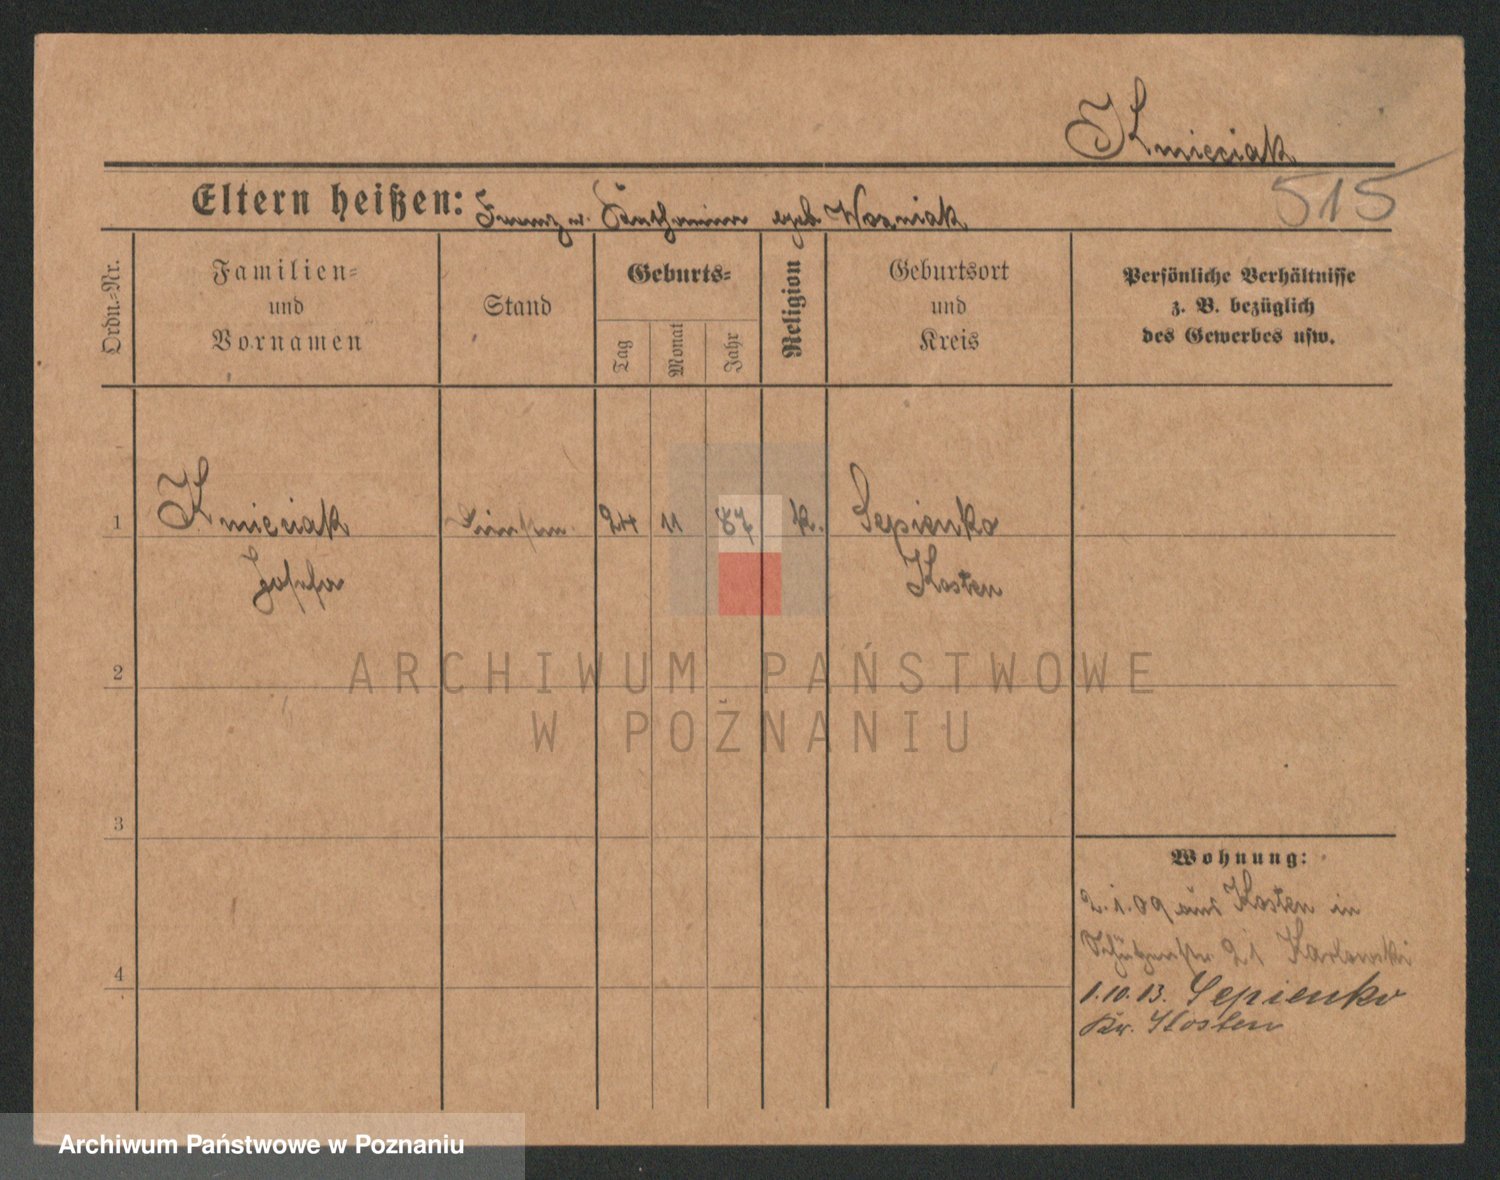 Kmieciak
515
Eltern heißen: Franz u. geb. Wozniak
Ordn.=Nr.
Familien=
und
Vornamen
Stand
Geburts=
Tag
Monat
Jahr
Religion
Geburtsort
und
Kreis
Persönliche Verhältnisse
z. B. bezüglich
des Gewerbes usw.
1 Kmieciak 24 11 87 k. Sepienko
Josefa Kosten
2
ARCHIWUM PAŃSTWOWE
W POZNANIU
3
Wohnung:
2.1.09 aus Kosten in
Schützenstr. 21 Karlowski
4
1.10.13. Sepienko
Kr. Kosten
Archiwum Państwowe w Poznaniu